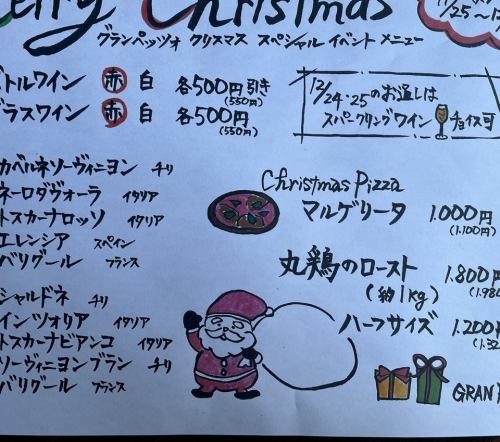 erry Christmas
グランペッツォ クリスマス スペシャル イベント メニュー
/25~
トルワイン 赤 白 各500円引き
(550円)
ラスワイン 赤 白 各500円
(550円)
12/24・25のお通しは
スパークリングワイン チョイス可
カベルネソーヴィニヨン チリ
ネーロダヴォーラ イタリア
トスカーナロッソ イタリア
エレンシア スペイン
バリグール フランス
シャルドネ チリ
インツォリア イタリア
トスカーナビアンコ イタリア
ソーヴィニヨンブラン チリ
バリグール フランス
Christmas Pizza
マルゲリータ 1.000円
(1.100円)
丸鶏のロースト 1.800円
(約1kg) (1.980
ハーフサイズ 1.200円
(1.32
GRAN